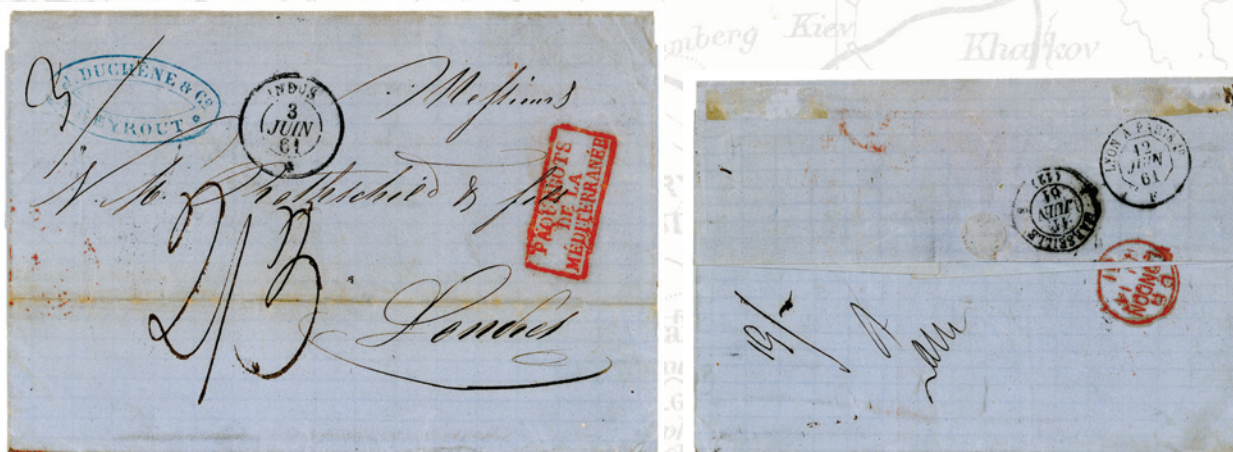 J. DUCHÊNE & Cº
BEYROUT
INDUS
3
JUIN
61
Messieurs
N. M. Rothschild & fils
2/3
Londres
PAQUEBOTS
DE LA
MÉDITERRANÉE
emberg Kiev
Kharkov
LYON A PARIS
12
JUIN
61
F
MARSEILLE
JUIN
61
(12)
LONDON
19/-